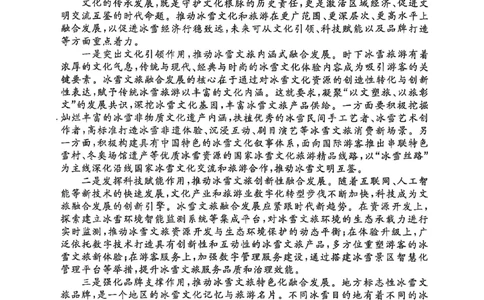 文化的传承发展,既是守护文化根脉的历史责任,更是激活区域经济、促进文
明交流互鉴的时代命题。推动冰雪文化和旅游在更广范围、更深层次、更高水平上
融合发展,以促进冰雪经济行稳致远,未来可从文化引领、科技赋能以及品牌打造
等方面重点着力。
一是突出文化引领作用,推动冰雪旅游内涵式融合发展。时下冰雪旅游有着
浓厚的文化气息,传统与现代、经典与时尚的冰雪文化体验内容成为吸引游客的关
键要素。冰雪文旅融合发展的核心在于通过对冰雪文化资源的创造性转化与创新
性表达,赋予传统冰雪旅游以丰富的文化内涵。这就要求,凝聚“以文塑旅、以旅彰
文”的发展共识,深挖冰雪文化基因,丰富冰雪文旅产品供给。一方面要积极挖掘
灿烂丰富的冰雪非物质文化遗产内涵,扶植优秀的冰雪民间手工艺者、冰雪艺术创
作者,高标准打造冰雪非遗体验、沉浸互动、剧目演艺等冰雪文旅消费新场景。另
一方面,积极构建具有中国特色的冰雪文化叙事体系,面向国际游客推出串联特色
雪村、冬奥场馆遗产等优质冰雪资源的国家冰雪文化旅游精品线路,以“冰雪丝路”
为主线深化沿线国家冰雪文化交流和旅游合作,推动冰雪文明互鉴。
二是发挥科技赋能作用,推动冰雪文旅创新性融合发展。随着互联网、人工智
能等新技术的快速发展,文化产业和旅游业数字化转型步伐不断加快,科技成为文
旅融合发展的创新引擎。冰雪文旅融合发展应紧跟时代新趋势。在资源开发上,
探索建立冰雪环境智能监测系统等集成平台,对冰雪文旅环境的生态承载力进行
实时监测,推动冰雪文旅资源开发与生态环境保护的动态平衡;在体验升级上,广
泛依托数字技术打造具有创新性和互动性的冰雪文旅产品,多方位重塑游客的冰
雪文旅新体验;在游客服务上,加强数字管理服务建设,通过搭建冰雪景区智慧化
管理平台等举措,提升冰雪文旅服务品质和治理效能。
三是强化品牌支撑作用,推动冰雪文旅特色化融合发展。地方标志性冰雪文
旅品牌,是一个地区的冰雪文化记忆与旅游名片。不同冰雪目的地有着不同的冰